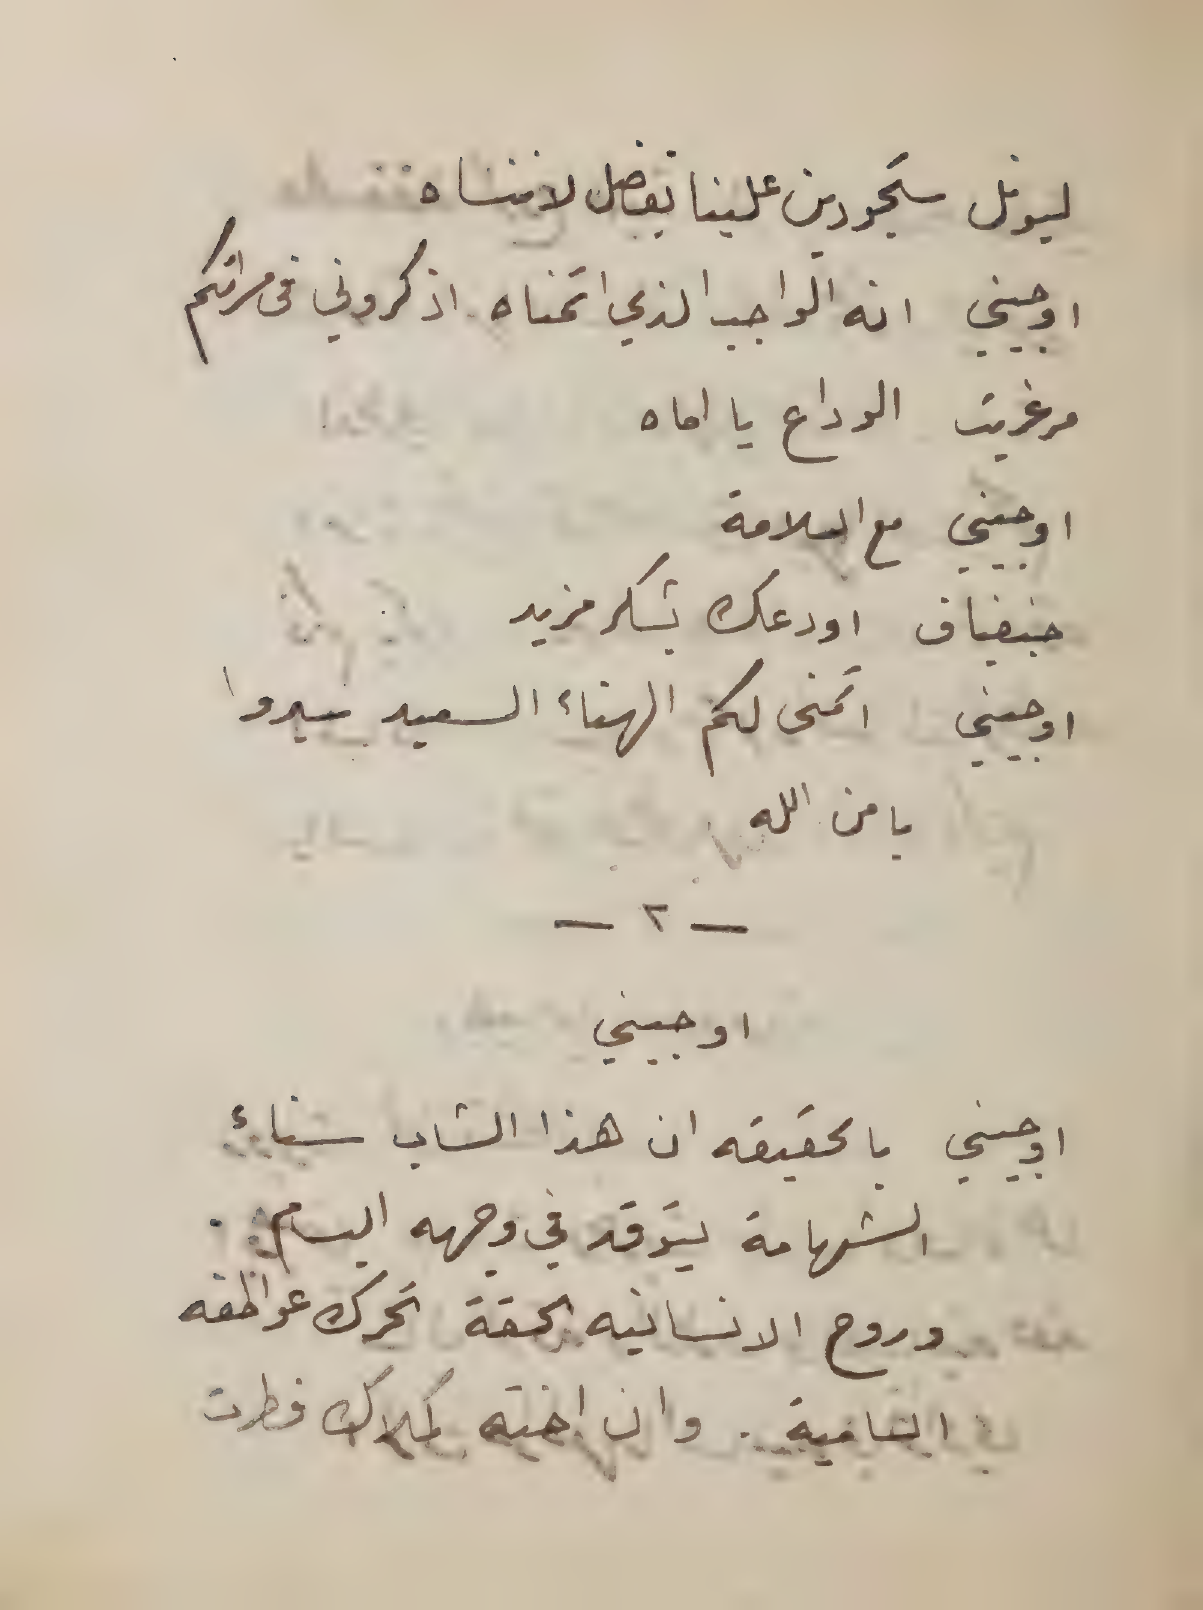 ليونل ستجودين علينا بفضل لا ننساه
اوجيني انه الواجب الذي اتمناه. اذكروني في مراثكم
مرغريت الوداع يا اماه
اوجيني مع السلامة
جنفياف اودعك بشكر مزيد
اوجيني اتمنى لكم الهناء السعيد سيروا
بامن الله
— ٢ —
اوجيني
اوجيني بالحقيقه ان هذا الشاب سناء
الشهامة يتوقد في وجهه البسام.
وروح الانسانيه الحقة تحرك عواطفه
السامية. وان اخته لملاك فطرت